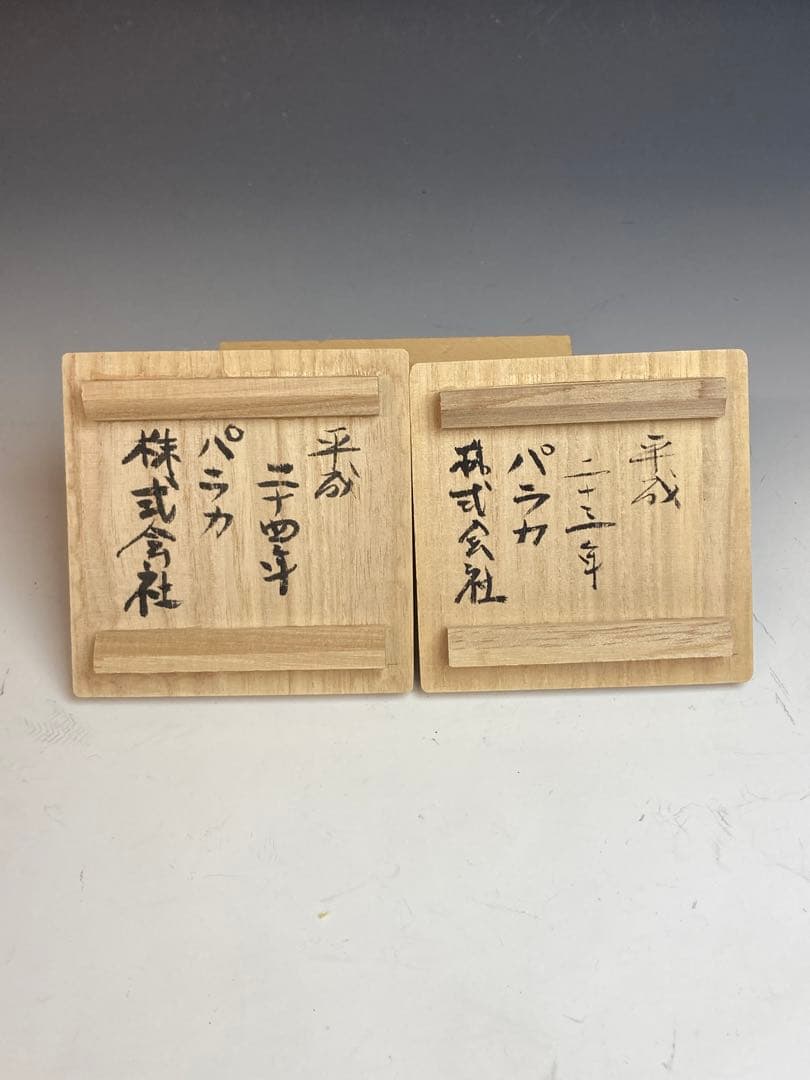 平成
二十四年
パラカ
株式会社
平成
二十三年
パラカ
株式会社